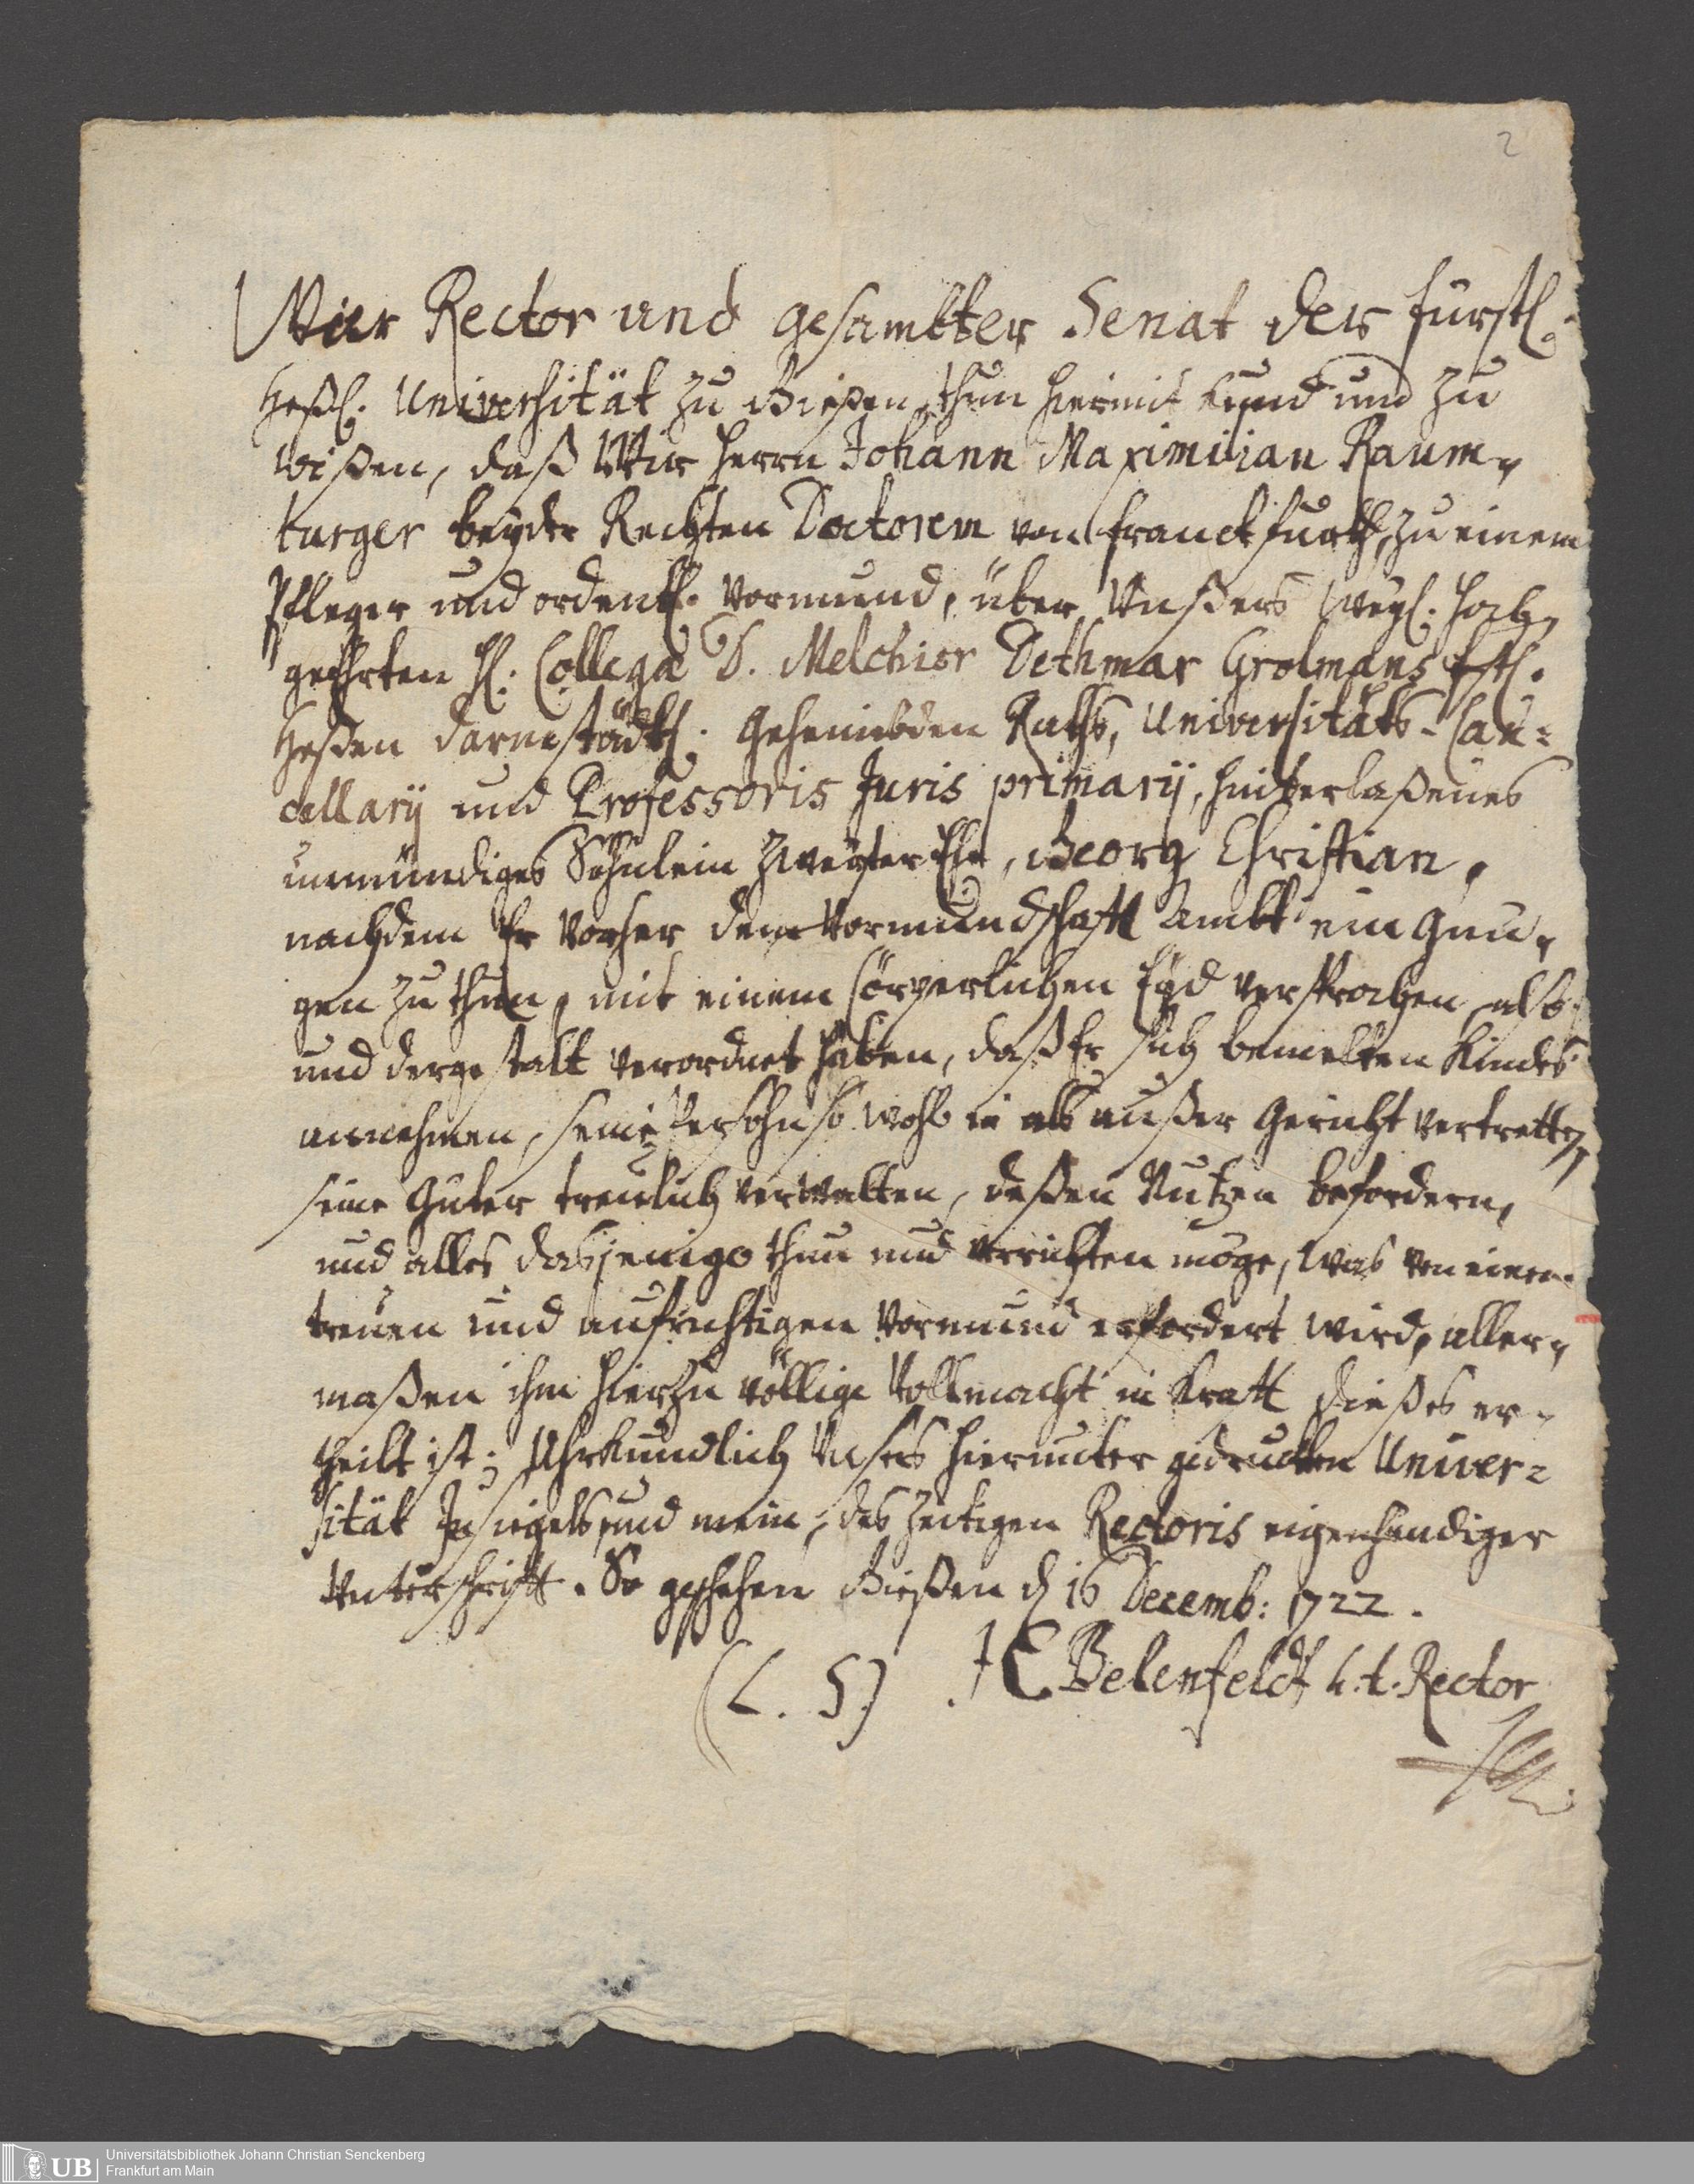 2
Wier Rector und gesambter Senat der furstl.
Heßl. Universität zu Gießen, thun hiermit kund und zu
wißen, daß Wir Herrn Johann Maximilian Raum-
burger beyder Rechten Doctorem von Franckfurth, zu einem
Pfleger und ordentl. Vormund, über Unßers weyl. hoch-
geehrten H. Collega D. Melchior Dethmar Grolmans fstl.
Heßen Darmstädtl. Geheimbden Raths, Universitäts-Can=
cellarij und Professoris Juris primarij, hinterlaßenes
unmündiges Söhnlein zweyter Ehe, Georg Christian,
nachdem Er vorher dem Vormundschafft Ambt ein Gnü-
gen zu thun, mit einem Cörperlichen Eyd versprochen, also
und dergestalt verordnet haben, daß Er sich bemelten Kindes
annehmen, seine Persohn so wohl in als außer Gericht vertretten,
seine Guter treulich verwalten, deßen Nutzen befordern,
und alles dasjenige thun und verrichten möge, was von einem
treuen und aufrichtigen Vormund erfordert wird, aller-
maßen ihm hierzu völlige Vollmacht in Krafft dießes er-
theilt ist; Uhrkundlich Unsers hierunter gedruckten Univer=
sität Insiegels und mein, des zeitigen Rectoris eigenhändiger
Unterschrifft. So geschehen Gießen d 16 Decemb: 1722.
(L. S.) J E Belenfeldt h. t. Rector
UB Universitätsbibliothek Johann Christian Senckenberg
Frankfurt am Main